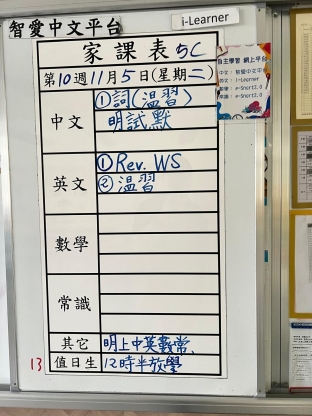 智愛中文平台
i-Learner
家課表 5C
第10週11月5日(星期二)
自主學習 網上平台
中文：智愛中文平台
英文：i-Learner
中文 ①詞(溫習)
明試默
英文 ①Rev. WS
②溫習
數學
常識
其它 明上中英數常、
13 值日生 12時半放學